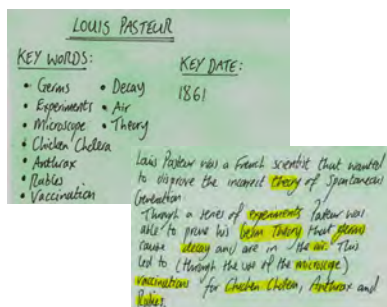 LOUIS PASTEUR
KEY WORDS:
• Germs
• Experiments
• Microscope
• Chicken Cholera
• Anthrax
• Rabies
• Vaccination
• Decay
• Air
• Theory
KEY DATE:
1861
Louis Pasteur was a French scientist that wanted
to disprove the incorrect theory of Spontaneous
Generation
Through a series of experiments Pasteur was
able to prove his Germ Theory that germs
cause decay and are in the air. This
led to (through the use of the microscope)
vaccinations for Chicken Cholera, Anthrax and
Rabies.